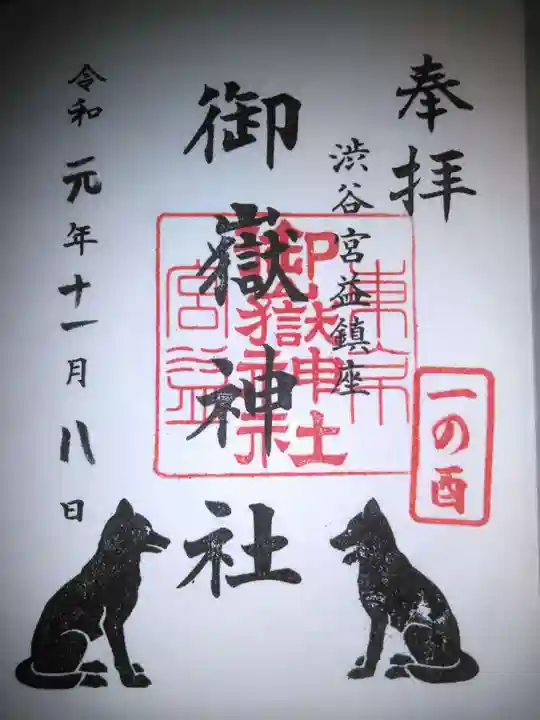 奉拝
渋谷宮益鎮座
御嶽神社
令和元年十一月八日
一の酉
東京
御嶽神社
宮益